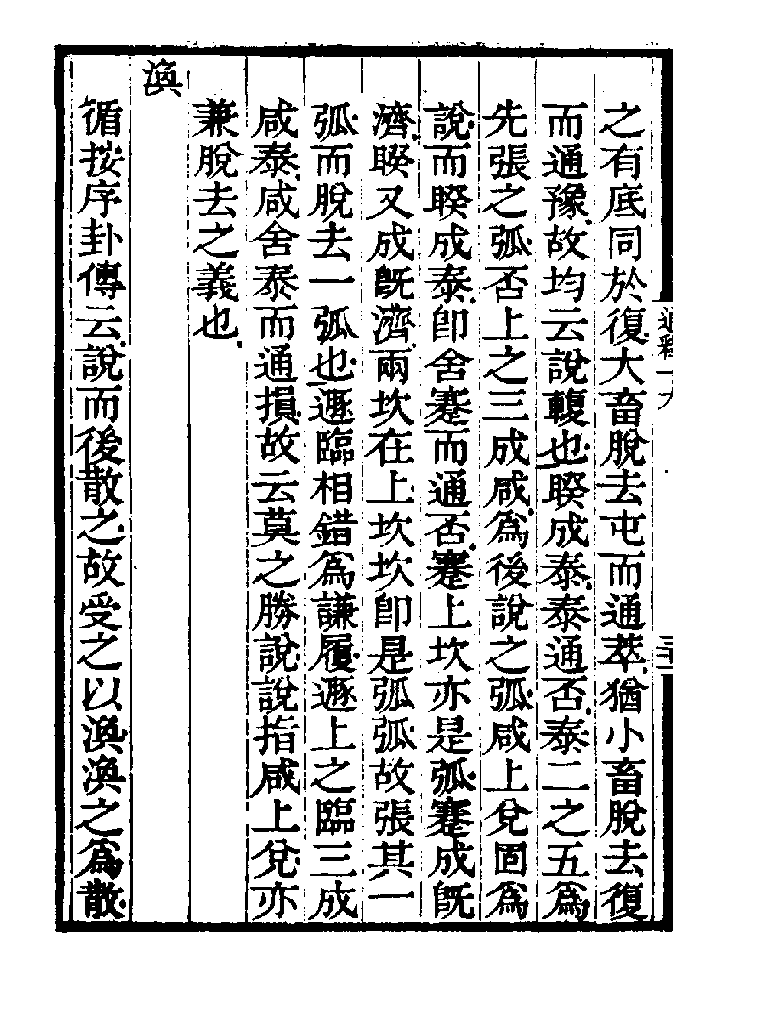 之有底同於復大畜脫去屯而通萃猶小畜脫去復
而通豫故均云說輹也睽成泰泰通否泰二之五爲
先張之弧否上之三成咸爲後說之弧咸上兌固爲
說而睽成泰卽舍蹇而通否蹇上坎亦是弧蹇成旣
濟睽又成旣濟兩坎在上坎坎卽是弧弧故張其一
弧而脫去一弧也遯臨相錯爲謙履遯上之臨三成
咸泰咸舍泰而通損故云莫之勝說說指咸上兌亦
兼脫去之義也
渙
循按序卦傳云說而後散之故受之以渙渙之爲散